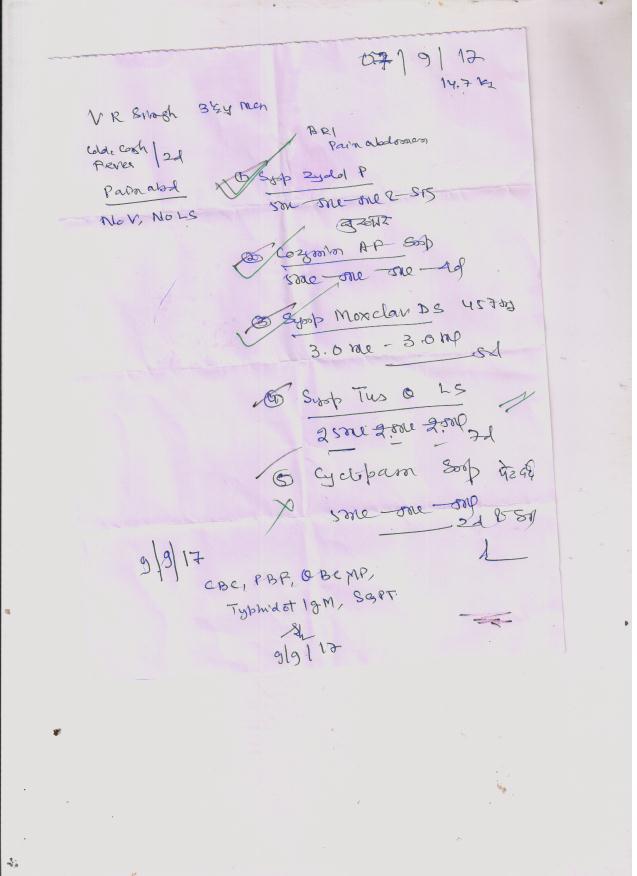 07/9/17
14.7 kg
V R Singh 3½y
ARI
Pain abdomen
Cold, Cough
Fever /2d
Pain abd
No V, No LS
① Syrp P
5ml - 5ml - 5ml
बुखार
② AP Syrp
5ml - 5ml - 5ml - 4d
③ Syrp Moxclav DS 457mg
3.0 ml - 3.0 ml
5d
④ Syrp Tus Q LS
2.5ml 2.5ml 2.5ml 7d
⑤ Cyclopam Syrp पेट दर्द
5ml - 5ml - 5ml
2d
9/9/17
CBC, PBF, QBC MP,
Typhidot IgM, SGPT
9/9/17